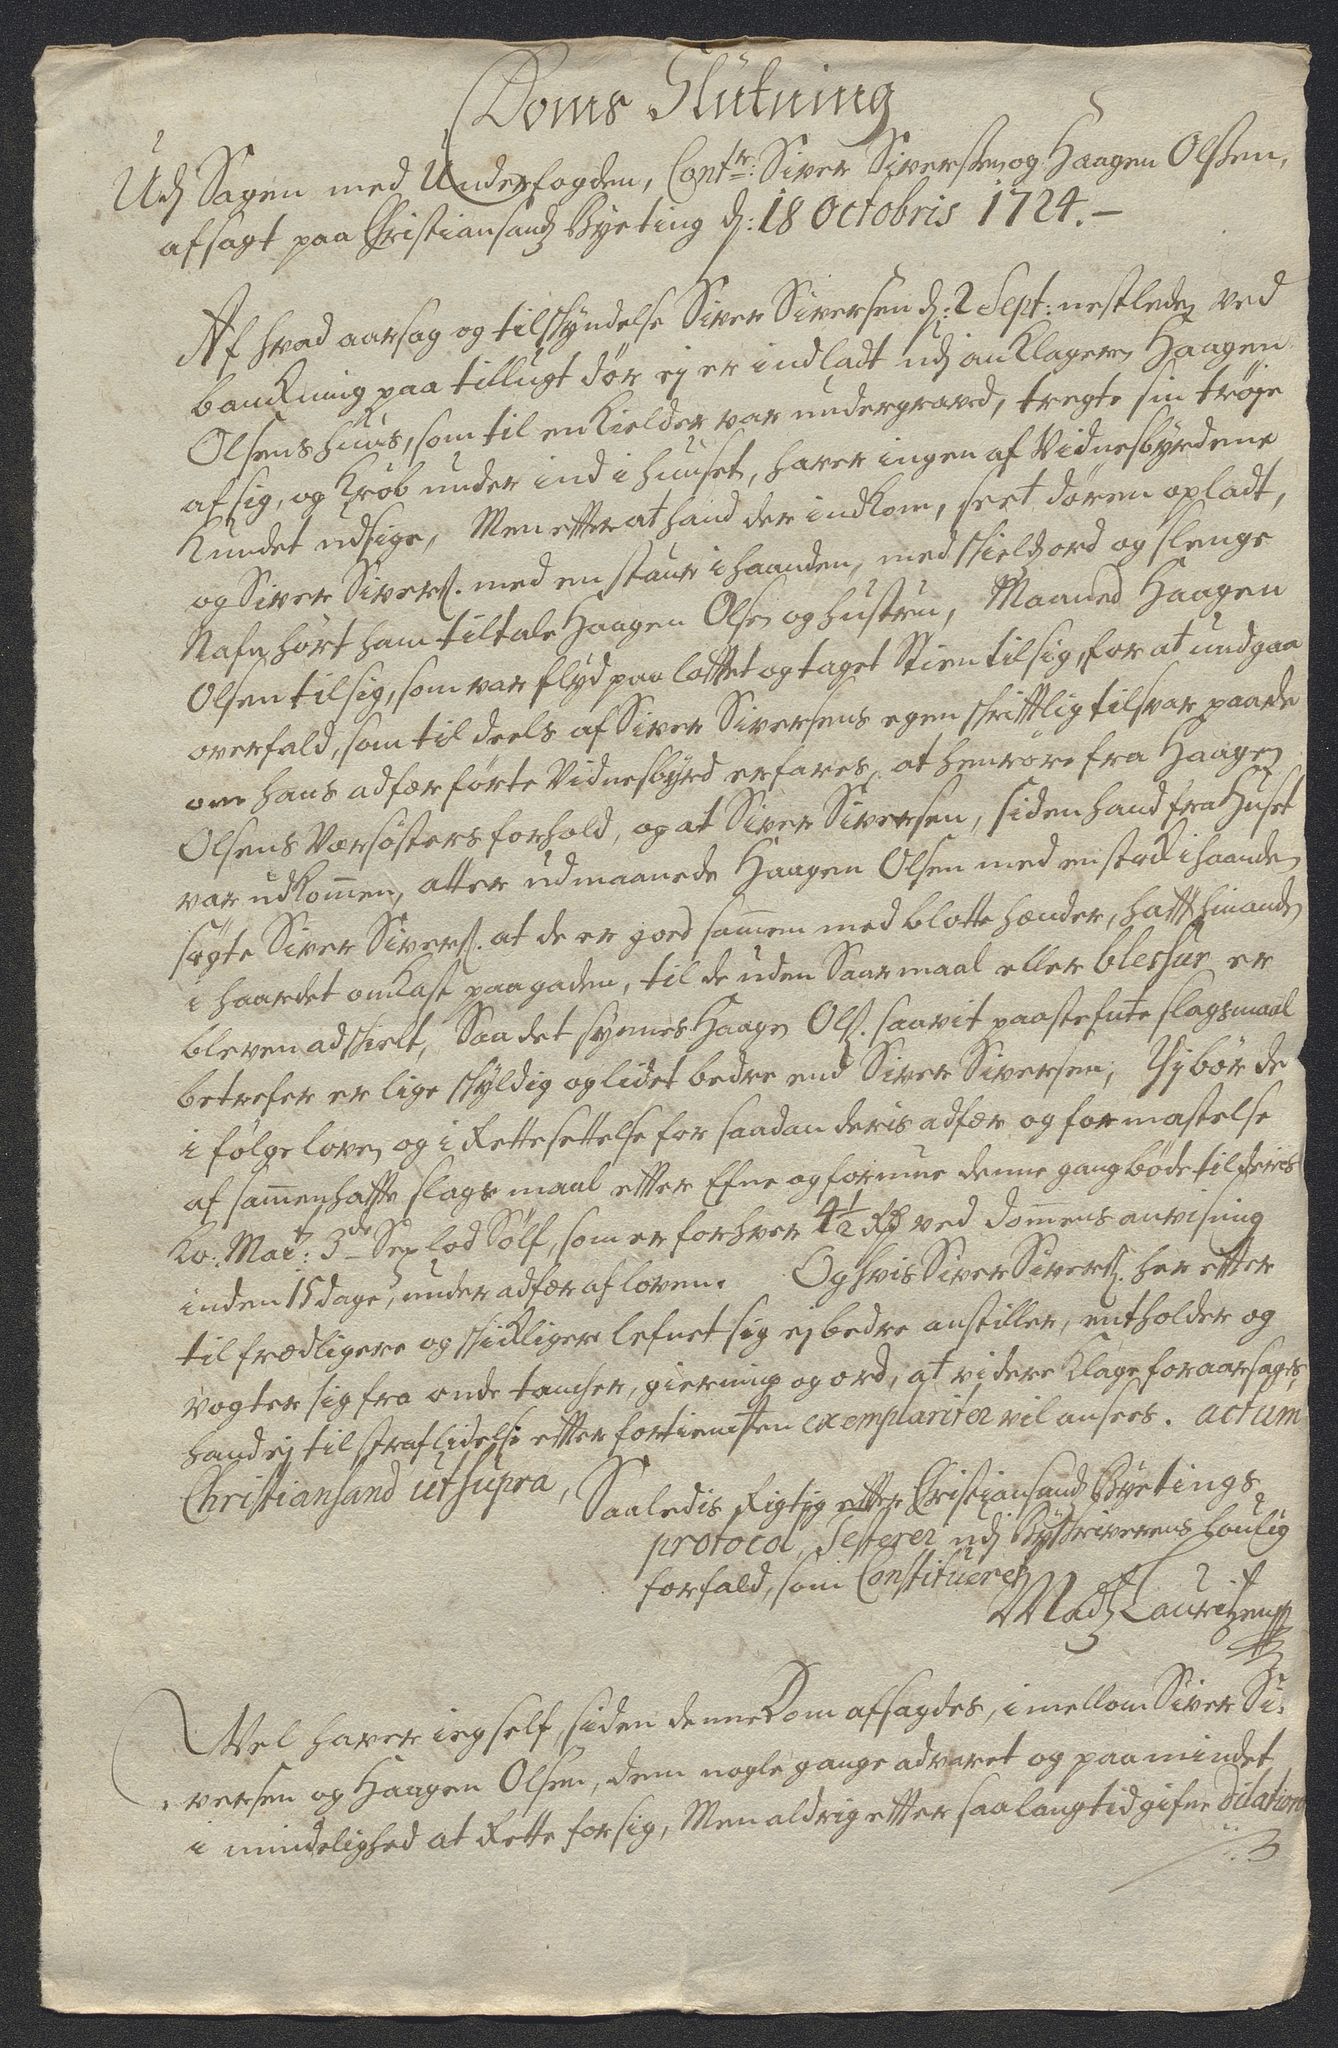 Doms Slutning
Udj Sagen med Underfogden, Contr: Siver Siversen og Haagen Olsen,
afsagt paa Christiansandz Byeting d: 18 Octobris 1724.—
Af hvad aarsag og tilskyndelse Siver Siversen d: 2 Sept: nestleden ved
banckning paa tillugt dør ej er indladt udj anklageren Haagen
Olsens huus, som til en Kielder var undergraved, tregte sin trøje
af sig, og Krøb under ind i huuset, haver ingen af Vidnesbyrdene
Kundet udsige, Men etter at hand der indkom, seet døren opladt,
og Siver Sivers. med en staur i haanden, med skieldzord og slenge
Nafn hørt ham tiltale Haagen Olsen og hustru, Maaned Haagen
Olsen til sig, som var flyd paa lottet og taget Stien til sig, for at undgaa
overfald, som til deels af Siver Siversens egen skrifftlig tilsvar paa de
om hans adfær førte Vidnesbyrd erfares, at henrøre fra Haagen
Olsens Værsøsters forhold, og at Siver Siversen, siden hand fra Huset
var udkommen, atter udmaanede Haagen Olsen med en stock i haanden
søgte Siver Sivers. at de er goed sammen med blotte hænder, hafft hinanden
i haardet omkast paa gaden, til de uden Saarmaal eller blessur er
bleven adskielt, Saa det synnes Haagen Ols. saavit paastefnte slagsmaal
betrefer er lige skyldig og lidet bedre end Siver Siversen, Thj bør de
i følge loven og i Rettesettelse for saadan deris adfær og formastelse
af sammenhaffte slagsmaal etter Efne og formue denne gang bøde til deris
Ko: Mait: 3de Sex lod Sølf, som er for hver 4½ Rd ved dommens anvisning
inden 15 dage, under adfær af loven. Og hvis Siver Sivers. her etter
til fredligere og skickligere lefnet sig ej bedre anstiller, entholder og
vogter sig fra onde tancher, gierning og ord, at videre Klage foraarsages,
hand ej til straflidelse etter fortienesten exemplariter vil ansees. actum
Christiansand ut supra,
Saaledis Rigtig etter Christiansandz Byetings
protocol, Testerer udj Byskriverens lovlig
forfald, som Constitueret
Madz Lauritzen
Vel haver ieg self, siden denne Dom afsagdes, imellom Siver Si-
versen og Haagen Olsen, dem nogle gange advaret og paamindet
i mindelighed at Rette for sig, Men aldrig etter saa lang tid gifne dilation